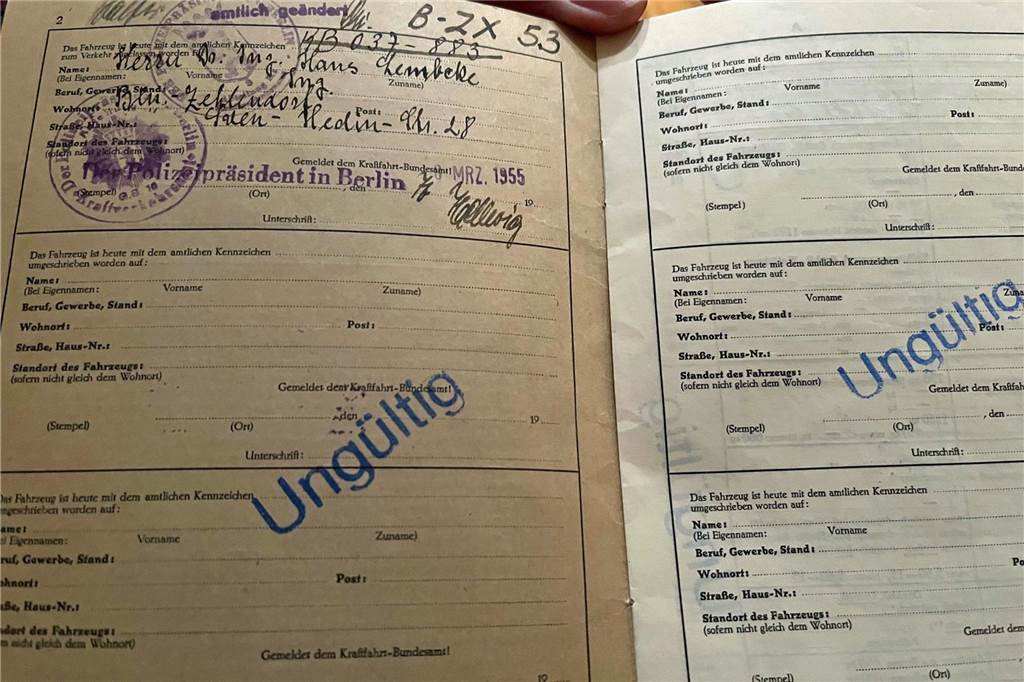 2
amtlich geändert
B-ZX 53
Das Fahrzeug ist heute mit dem amtlichen Kennzeichen
KB 037-883
zum Verkehr zugelassen worden für
Name: Herrn Dr. Ing. Hans Lembcke
(Bei Eigennamen: Vorname Zuname)
Beruf, Gewerbe, Stand: Ing.
Wohnort: Bln. Zehlendorf Post:
Straße, Haus-Nr.: Sven-Hedin-Str. 28
Standort des Fahrzeugs:
(sofern nicht gleich dem Wohnort)
Gemeldet dem Kraftfahrt-Bundesamt!
Der Polizeipräsident in Berlin, den MRZ. 1955 19
(Stempel) (Ort)
Unterschrift: Hellwig
Das Fahrzeug ist heute mit dem amtlichen Kennzeichen
umgeschrieben worden auf:
Name:
(Bei Eigennamen: Vorname Zuname)
Beruf, Gewerbe, Stand:
Wohnort: Post:
Straße, Haus-Nr.:
Standort des Fahrzeugs:
(sofern nicht gleich dem Wohnort)
Gemeldet dem Kraftfahrt-Bundesamt!
, den 19
(Stempel) (Ort)
Unterschrift:
Ungültig
Das Fahrzeug ist heute mit dem amtlichen Kennzeichen
umgeschrieben worden auf:
Name:
(Bei Eigennamen: Vorname Zuname)
Beruf, Gewerbe, Stand:
Wohnort: Post:
Straße, Haus-Nr.:
Standort des Fahrzeugs:
(sofern nicht gleich dem Wohnort)
Gemeldet dem Kraftfahrt-Bundesamt!
19
Das Fahrzeug ist heute mit dem amtlichen Kennzeichen
umgeschrieben worden auf:
Name:
(Bei Eigennamen: Vorname Zuname)
Beruf, Gewerbe, Stand:
Wohnort: Post:
Straße, Haus-Nr.:
Standort des Fahrzeugs:
(sofern nicht gleich dem Wohnort)
Gemeldet dem Kraftfahrt-Bundes
, den
(Stempel) (Ort)
Unterschrift:
Das Fahrzeug ist heute mit dem amtlichen Kennzeichen
umgeschrieben worden auf:
Name:
(Bei Eigennamen: Vorname Zuna
Beruf, Gewerbe, Stand:
Wohnort: Post:
Straße, Haus-Nr.:
Standort des Fahrzeugs:
(sofern nicht gleich dem Wohnort)
Gemeldet dem Kraftfahr
, den
(Stempel) (Ort)
Unterschrift:
Ungültig
Das Fahrzeug ist heute mit dem amtlichen Kennzeichen
umgeschrieben worden auf:
Name:
(Bei Eigennamen: Vorname
Beruf, Gewerbe, Stand:
Wohnort: Po
Straße, Haus-Nr.:
Standort des Fahrzeugs:
(sofern nicht gleich dem Wohnort)
Gemeldet dem
(Stempel) (Ort)